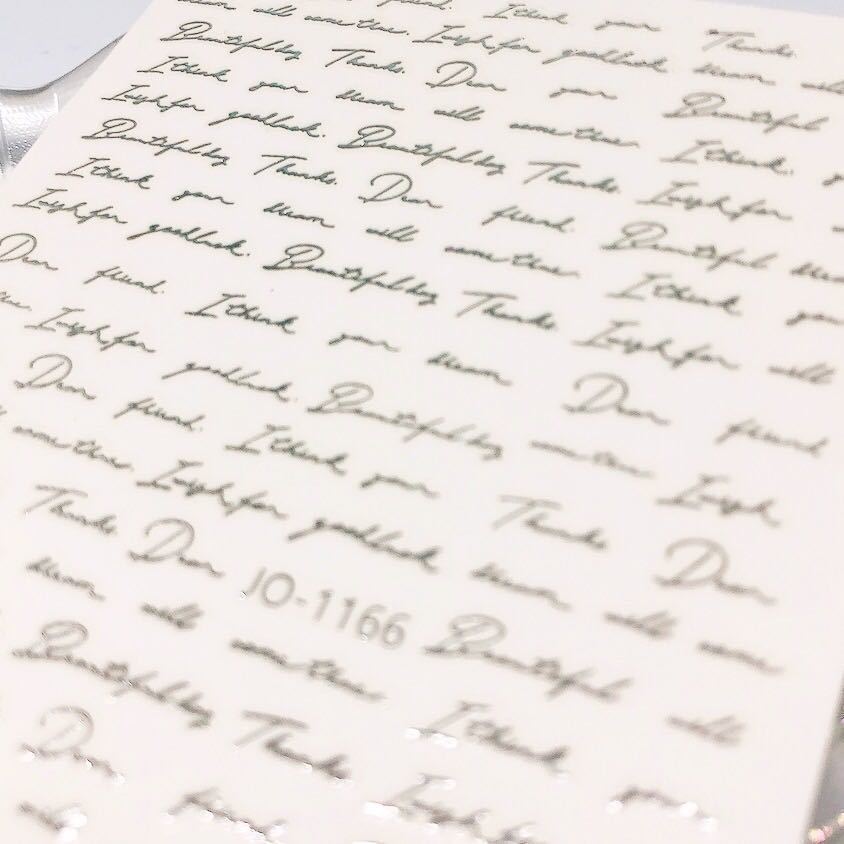 friend. I think your Thanks.
mean will come true. I wish for good luck. mean will
Beautiful day Thanks. Dear your Beautiful
I think your mean will come true. I think.
I wish for good luck. Beautiful day Thanks. I wish for
Beautiful day Thanks. Dear friend. Beautiful mean
I think your mean will come true. I think your
I wish for good luck. Beautiful day Thanks. I wish for will
Dear friend. I think your mean Dear friend
I wish for good luck. Beautiful day come true I wish
Dear friend. I think your Thanks Dear
come true. I wish for good luck mean will come
Thanks Dear JO-1166 Beautiful will
mean will come true I think your
Beautiful day Thanks I wish for
Dear friend